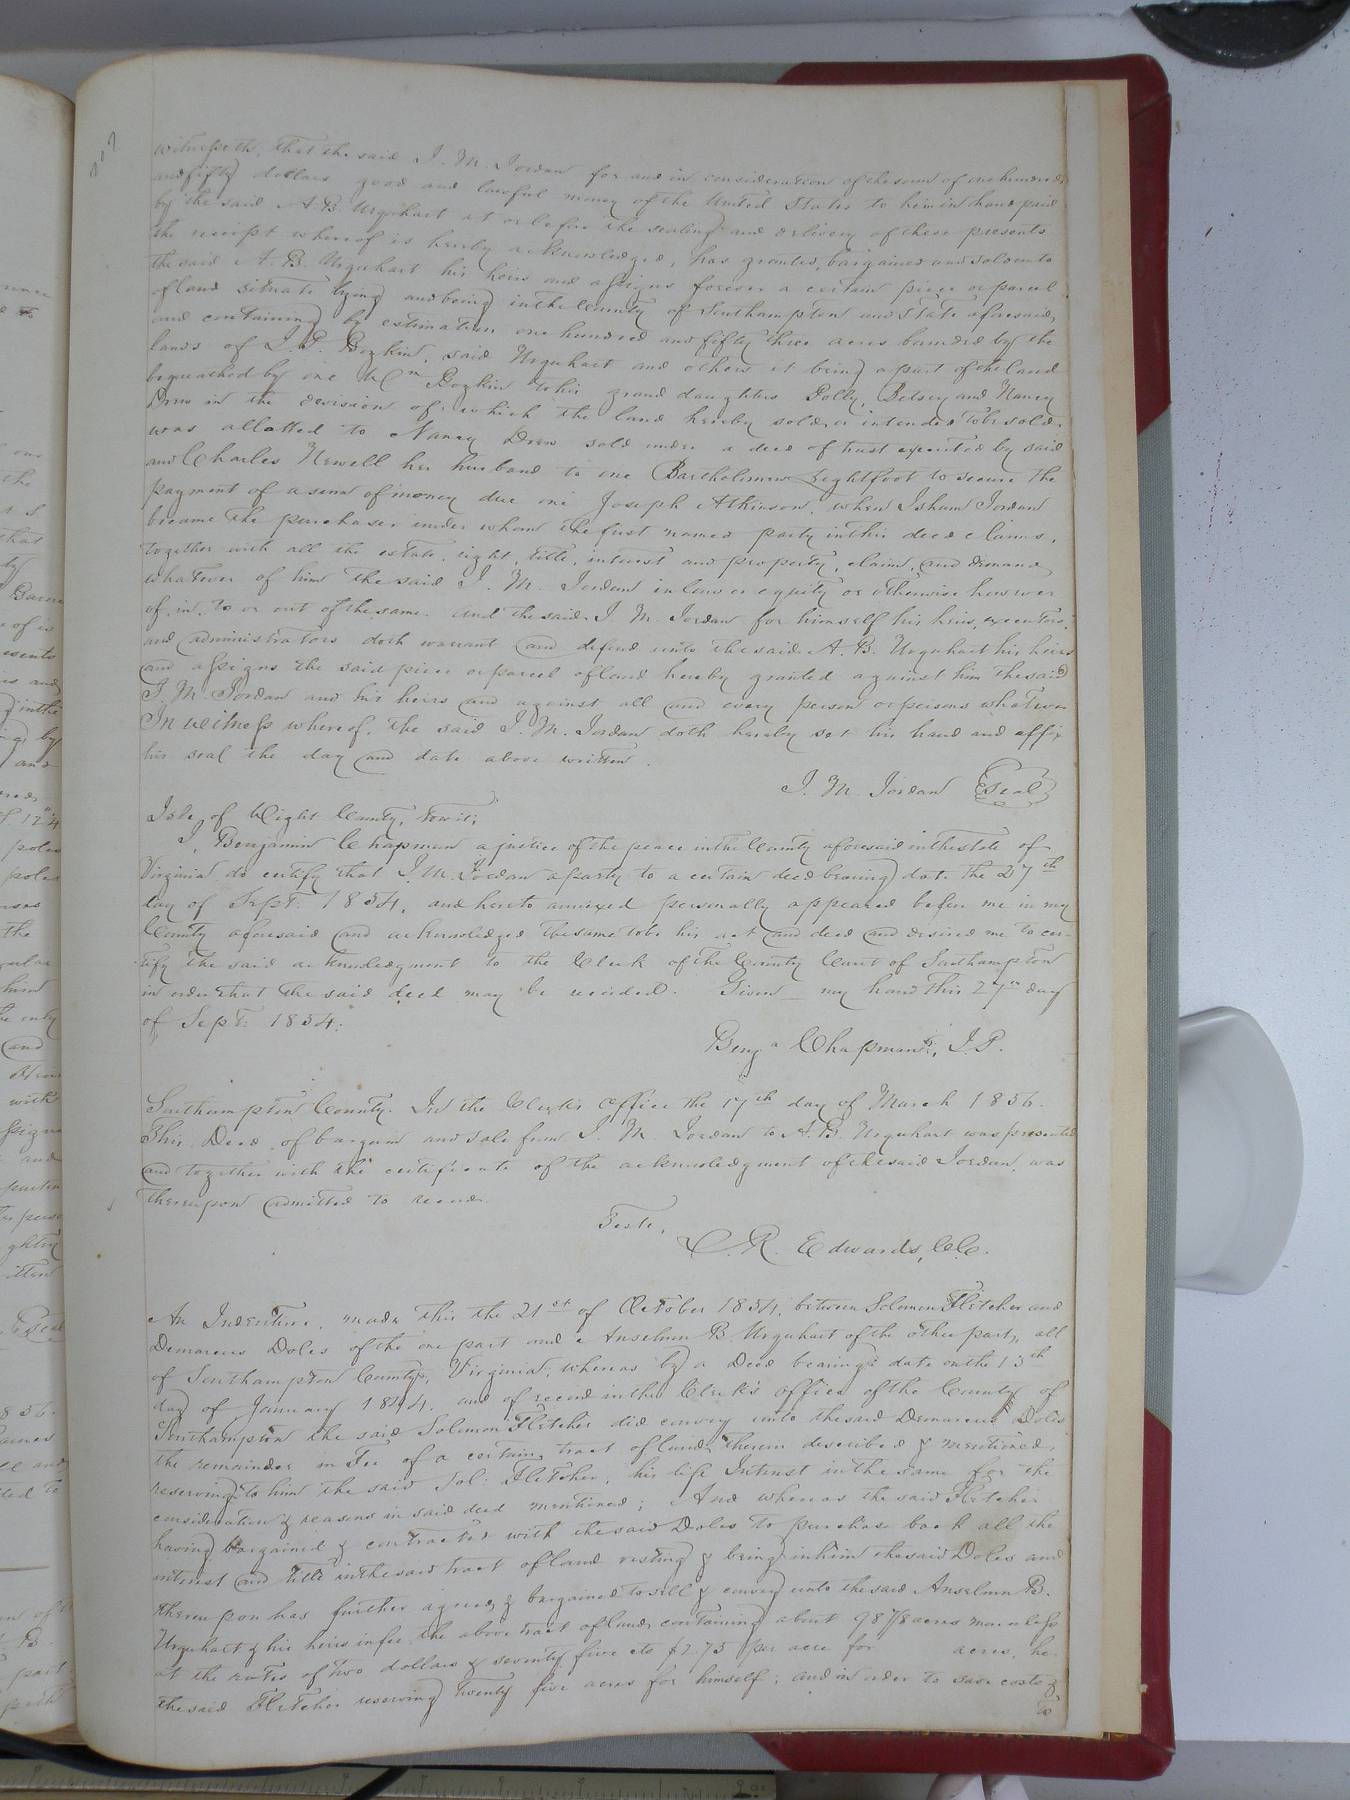 witnesseth, that the said J. M. Jordan for and in consideration of the sum of one hundred
and fifty dollars good and lawful money of the United States to him in hand paid
by the said A. B. Urquhart at or before the sealing and delivery of these presents
the receipt whereof is hereby acknowledged, has granted, bargained and sold unto
the said A. B. Urquhart his heirs and assigns forever a certain piece or parcel
of land situate lying and being in the County of Southampton and State aforesaid,
and containing by estimation one hundred and fifty three acres bounded by the
lands of J. D. Boykin, said Urquhart and others it being a part of the land
bequeathed by one Wm Boykin to his grand daughters Polly, Betsey and Nancy
Drew in the devision of which the land hereby sold or intended to be sold,
was allotted to Nancy Drew sold under a deed of trust executed by said
and Charles Newell her husband to one Bartholomew Lightfoot to secure the
payment of a sum of money due one Joseph Atkinson, when Isham Jordan
became the purchaser under whom the first named party in this deed claims,
together with all the estate, right, title, interest and property, claim, and demand
whatever of him the said J. M. Jordan in law or equity or otherwise however
of, in, to or out of the same. And the said J. M. Jordan for himself his heirs, executors,
and administrators doth warrant and defend unto the said A. B. Urquhart his heirs
and assigns the said piece or parcel of land hereby granted against him the said
J. M. Jordan and his heirs and against all and every person or persons whatever
In witness whereof, the said J. M. Jordan doth hereby set his hand and affix
his seal the day and date above written.
J. M. Jordan Seal
Isle of Wight County, towit;
I, Benjamin Chapman a justice of the peace in the County aforesaid in the state of
Virginia do certify that J. M. Jordan a party to a certain deed bearing date the 27th
day of Sept: 1854, and hereto annexed personally appeared before me in my
County aforesaid and acknowledged the same to be his act and deed and desired me to cer-
tify the said acknowledgment to the Clerk of the County Court of Southampton
in order that the said deed may be recorded. Given my hand this 27th day
of Sept: 1854.
Benja Chapman, J. P.
Southampton County. In the Clerk's Office the 17th day of March 1856.
This Deed of bargain and sale from J. M. Jordan to A. B. Urquhart was presented
and together with the certificate of the acknowledgment of the said Jordan, was
thereupon admitted to record.
Teste,
L. R. Edwards, C. C.
An Indenture, made this the 21st of October 1854, between Solomon Fletcher and
Demarcus Doles of the one part and Anselmn B. Urquhart of the other part, all
of Southampton County, Virginia; whereas by a Deed bearing date on the 13th
day of January 1844, and of record in the Clerk's office of the County of
Southampton the said Solomon Fletcher did convey unto the said Demarcus Doles
the remainder in Fee of a certain tract of land, therein described & mentioned,
reserving to him the said Sol: Fletcher, his life Interest in the same for the
consideration & reasons in said deed mentioned; And whereas the said Fletcher
having bargained & contracted with the said Doles to purchase back all the
interest and title in the said tract of land resting & being in him the said Doles and
thereupon has further agreed & bargained to sell & convey unto the said Anselmn B.
Urquhart & his heirs in fee, the above tract of land, containing about 98 7/8 acres more or less
at the rates of two dollars & seventy five cts $2.75 per acre for acres, he
the said Fletcher reserving twenty five acres for himself; and in order to save costs &
to